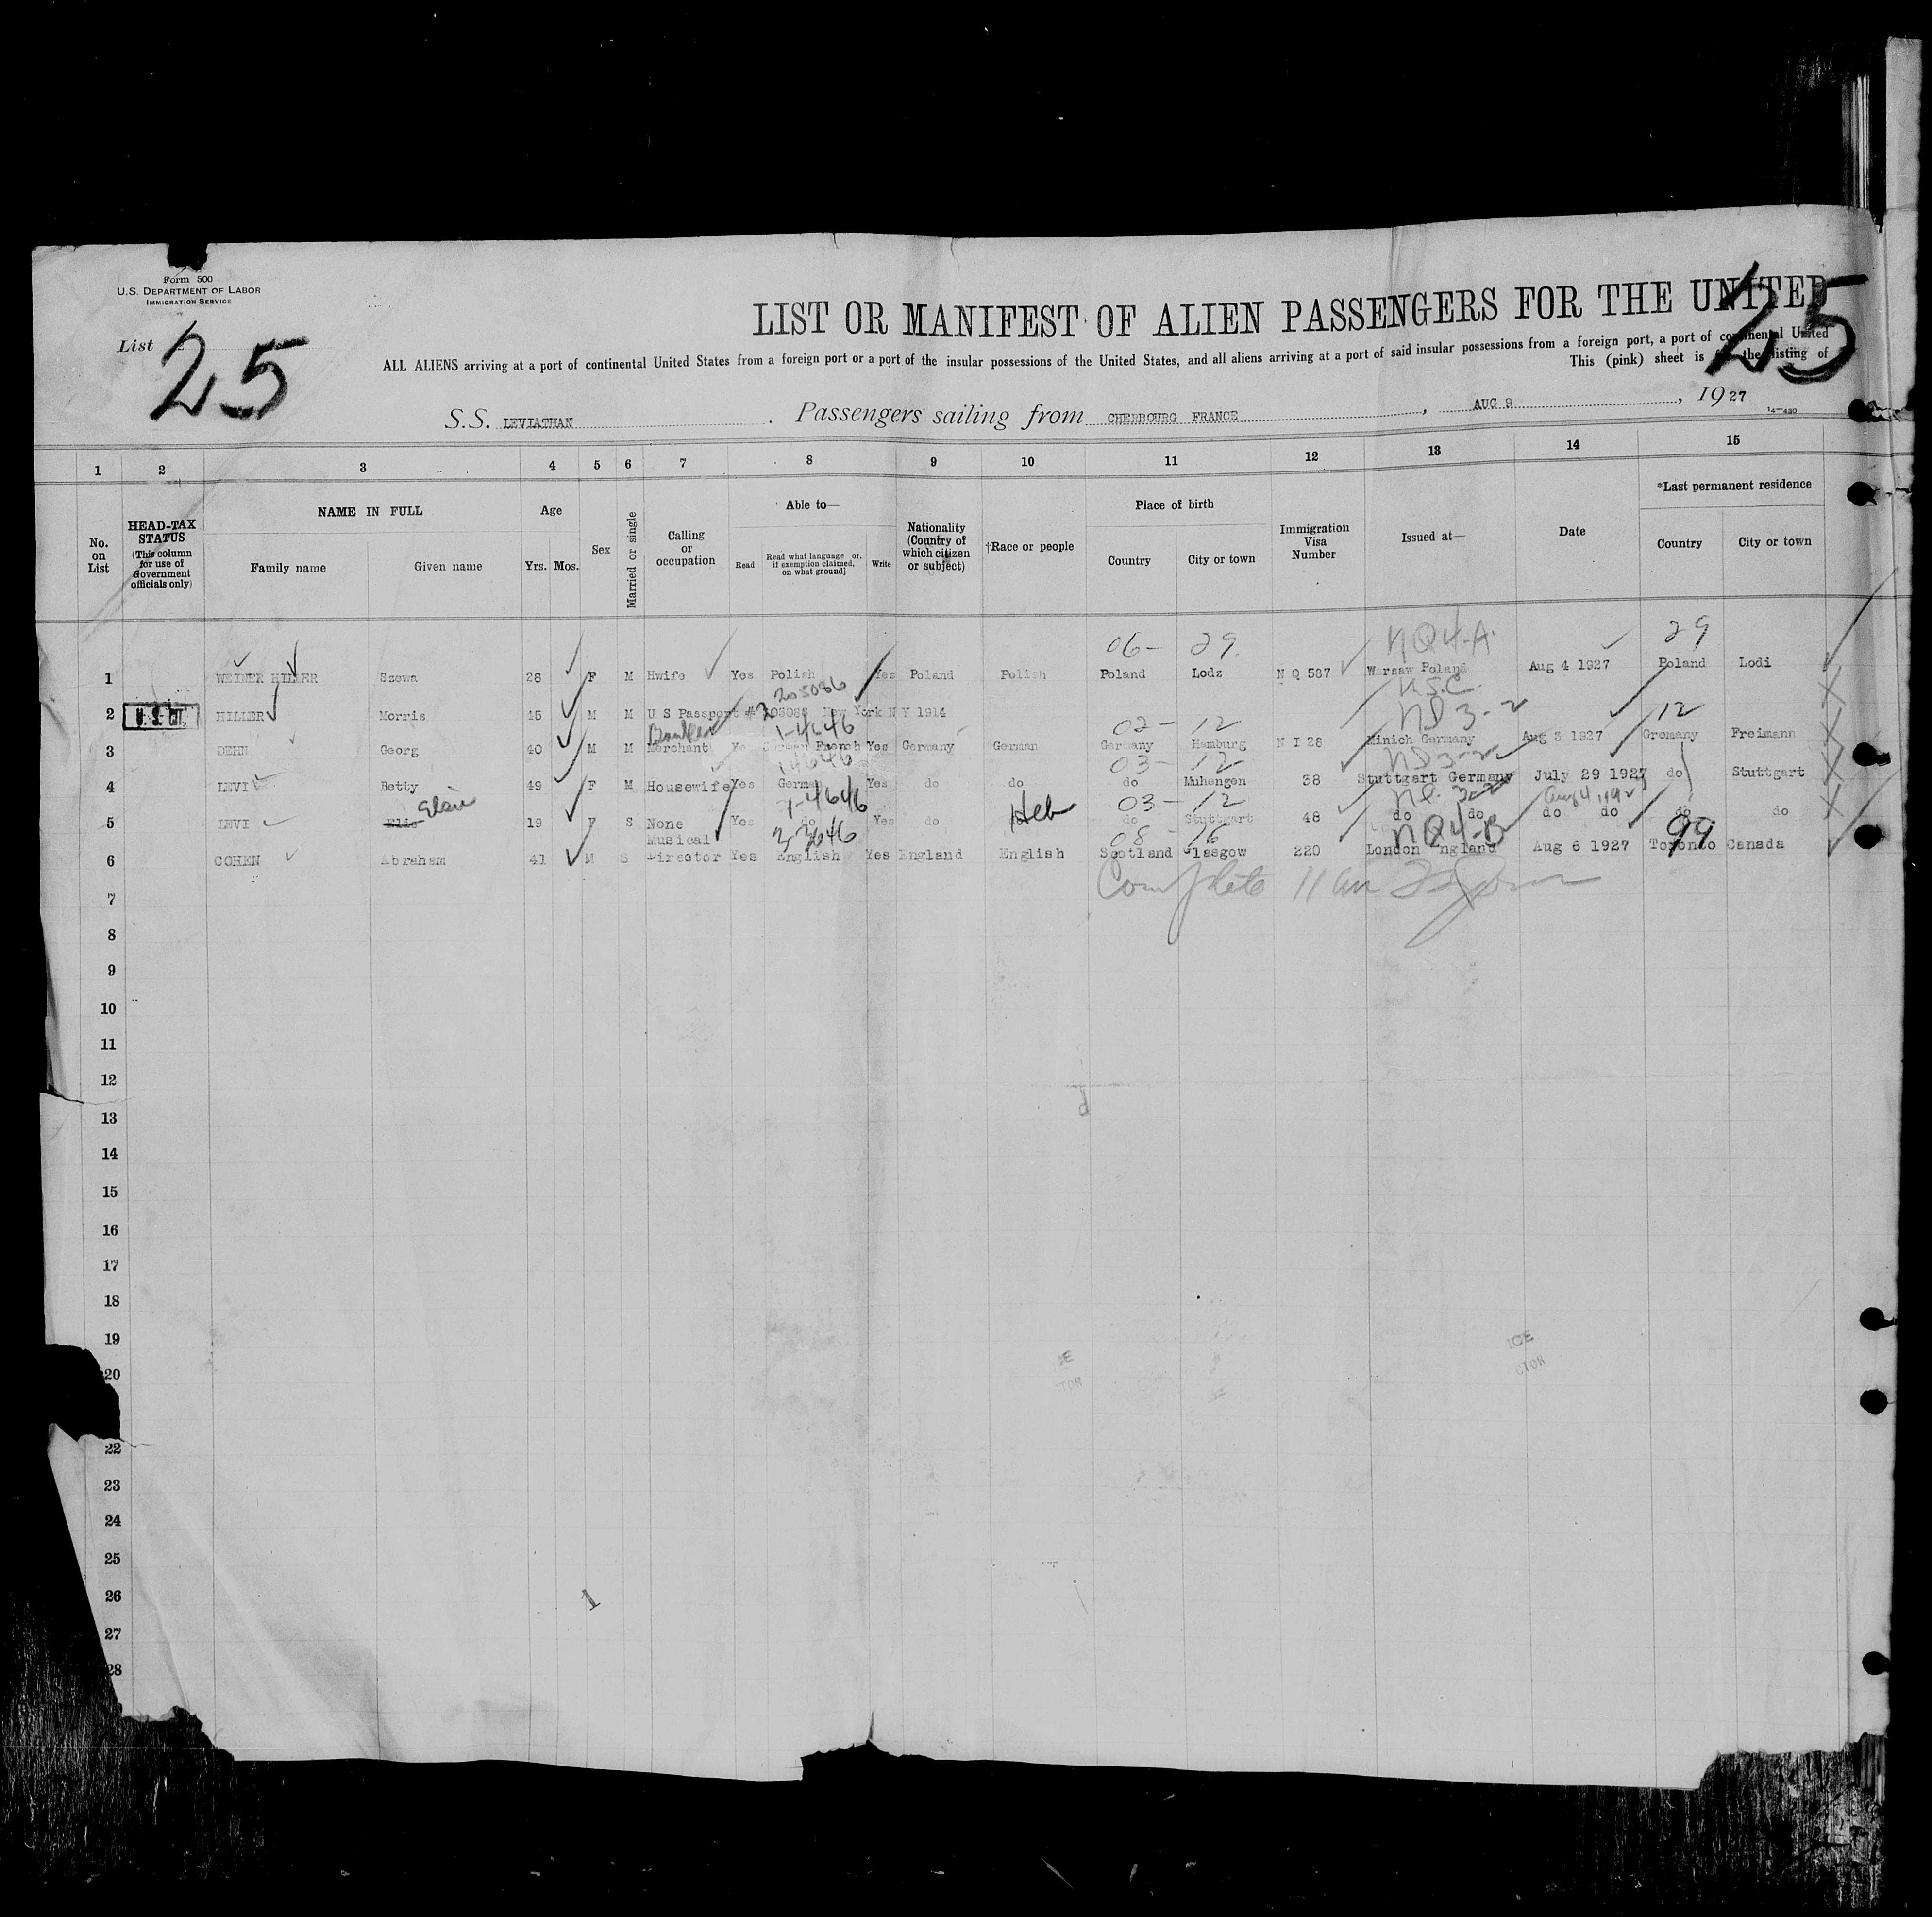 Form 500
U.S. DEPARTMENT OF LABOR
IMMIGRATION SERVICE
List 25
LIST OR MANIFEST OF ALIEN PASSENGERS FOR THE UNITED
25
ALL ALIENS arriving at a port of continental United States from a foreign port or a port of the insular possessions of the United States, and all aliens arriving at a port of said insular possessions from a foreign port, a port of continental United
This (pink) sheet is for the listing of
S.S. LEVIATHAN . Passengers sailing from CHERBOURG FRANCE , AUG 9 , 1927
14—430
1 2 3 4 5 6 7 8 9 10 11 12 13 14 15
No. on List
HEAD-TAX STATUS (This column for use of Government officials only)
NAME IN FULL
Family name Given name
Age
Yrs. Mos.
Sex
Married or single
Calling or occupation
Able to—
Read Read what language or, if exemption claimed, on what ground] Write
Nationality (Country of which citizen or subject)
†Race or people
Place of birth
Country City or town
Immigration Visa Number
Issued at—
Date
*Last permanent residence
Country City or town
06- 29 NQ4-A. 29
1 WEIDER HILLER Szewa 28 F M Hwife Yes Polish Yes Poland Polish Poland Lodz N Q 587 Warsaw Poland Aug 4 1927 Poland Lodi
205086 U.S.C.
2 U.S. CIT. HILLER Morris 45 M M U S Passport # 205086 New York N Y 1914
Banker 1-4646 02- 12 ND 3-2 12
3 DEHN Georg 40 M M Merchant Yes German French Yes Germany German Germany Hamburg N I 28 Minich Germany Aug 3 1927 Gremany Freimann
14646 03- 12 ND 3-2
4 LEVI Betty 49 F M Housewife Yes German Yes do do do Muhengen 38 Stuttgart Germany July 29 1927 do Stuttgart
Elsie 1-4646 Heb 03- 12 Aug 4 1927
5 LEVI Elis 19 F S None Yes do Yes do do do Stuttgart 48 do do do do do do
Musical 3-3646 08- 16 NQ4-B 99
6 COHEN Abraham 41 M S Director Yes English Yes England English Scotland Glasgow 220 London England Aug 6 1927 Toronto Canada
Complete 11 am
7
8
9
10
11
12
13
14
15
16
17
18
19
20
22
23
24
25
26
27
28
1